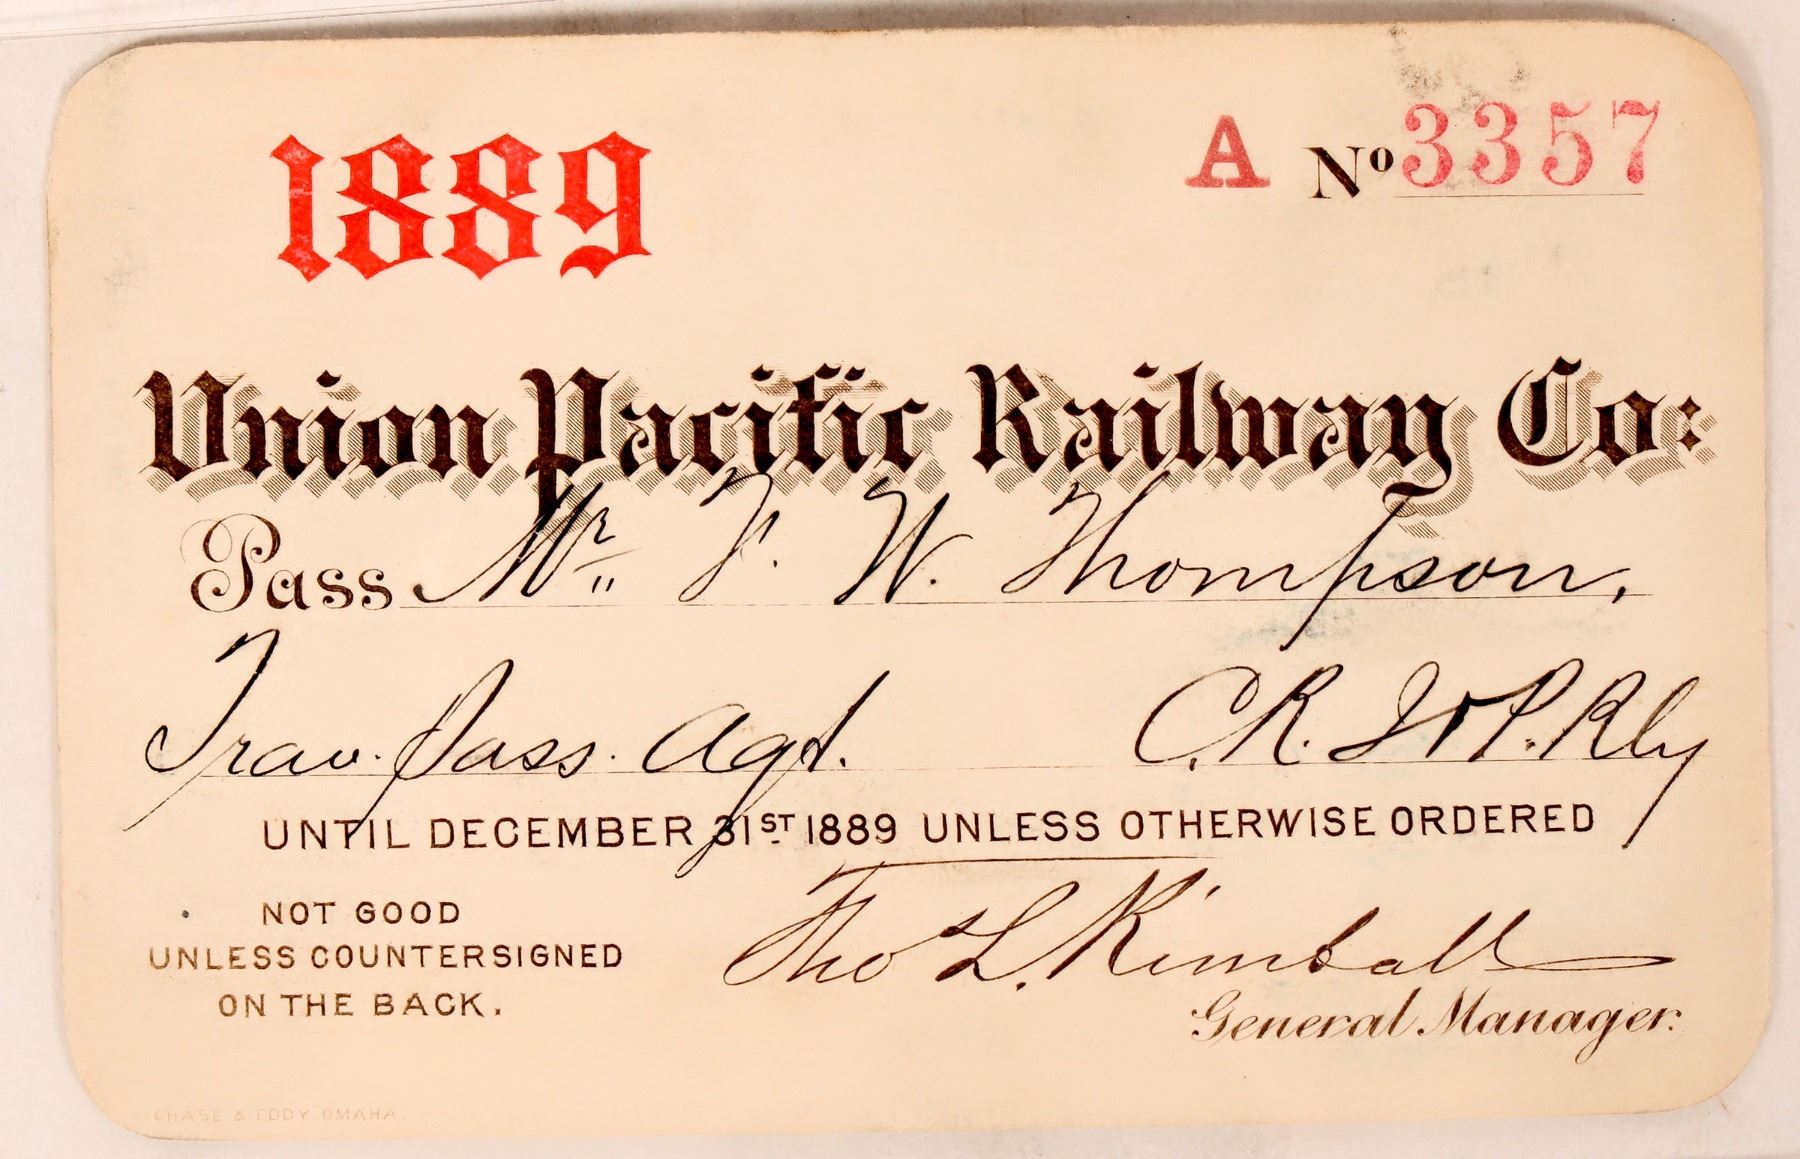 1889
A No 3357
Union Pacific Railway Co:
Pass Mr. F. W. Thompson,
Trav. Pass. Agt. C. R. I & P. Rly
UNTIL DECEMBER 31ST 1889 UNLESS OTHERWISE ORDERED
NOT GOOD
UNLESS COUNTERSIGNED
ON THE BACK.
Tho L. Kimball
General Manager.
CHASE & EDDY OMAHA.